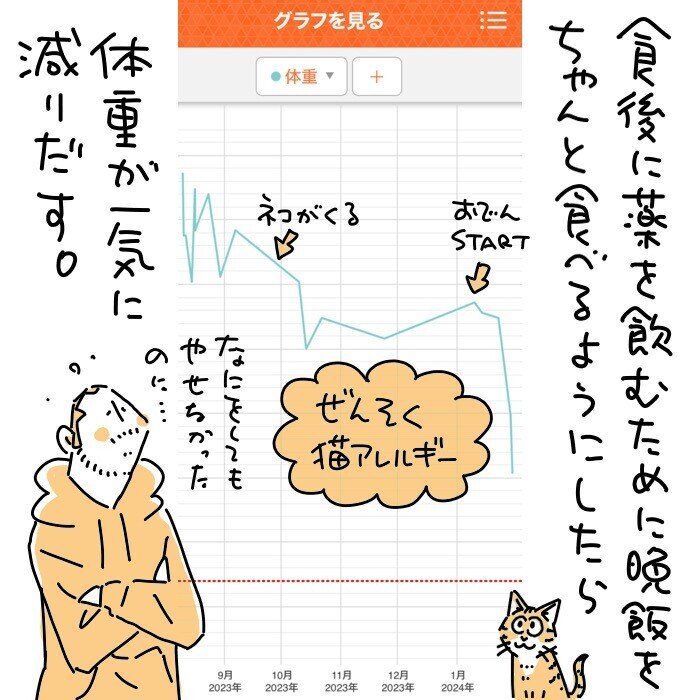 グラフを見る
体重 ▼
+
食後に薬を飲むために晩飯を
ちゃんと食べるようにしたら
体重が一気に
減りだす。
ネコがくる
おでん
START
ぜんそく
猫アレルギー
なにをしても
やせちかった
のに…
9月
2023年
10月
2023年
11月
2023年
12月
2023年
1月
2024年